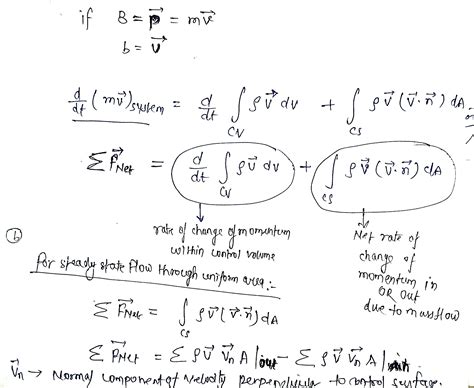 if B = p⃗ = mv⃗
b = v⃗
d/dt (mv⃗)system = d/dt ∫CV ρ v⃗ dv + ∫CS ρ v⃗ (v⃗·n⃗) dA
Σ F⃗Net = d/dt ∫CV ρ v⃗ dv + ∫CS ρ v⃗ (v⃗·n⃗) dA
rate of change of momentum within control volume
Net rate of change of momentum in OR out due to mass flow
(b)
for steady state flow through uniform area:-
Σ F⃗Net = ∫CS ρ v⃗ (v⃗·n⃗) dA
Σ F⃗Net = Σ ρ v⃗ v⃗n A |out - Σ ρ v⃗ v⃗n A |in
v⃗n → Normal component of velocity perpendicular to control surface.